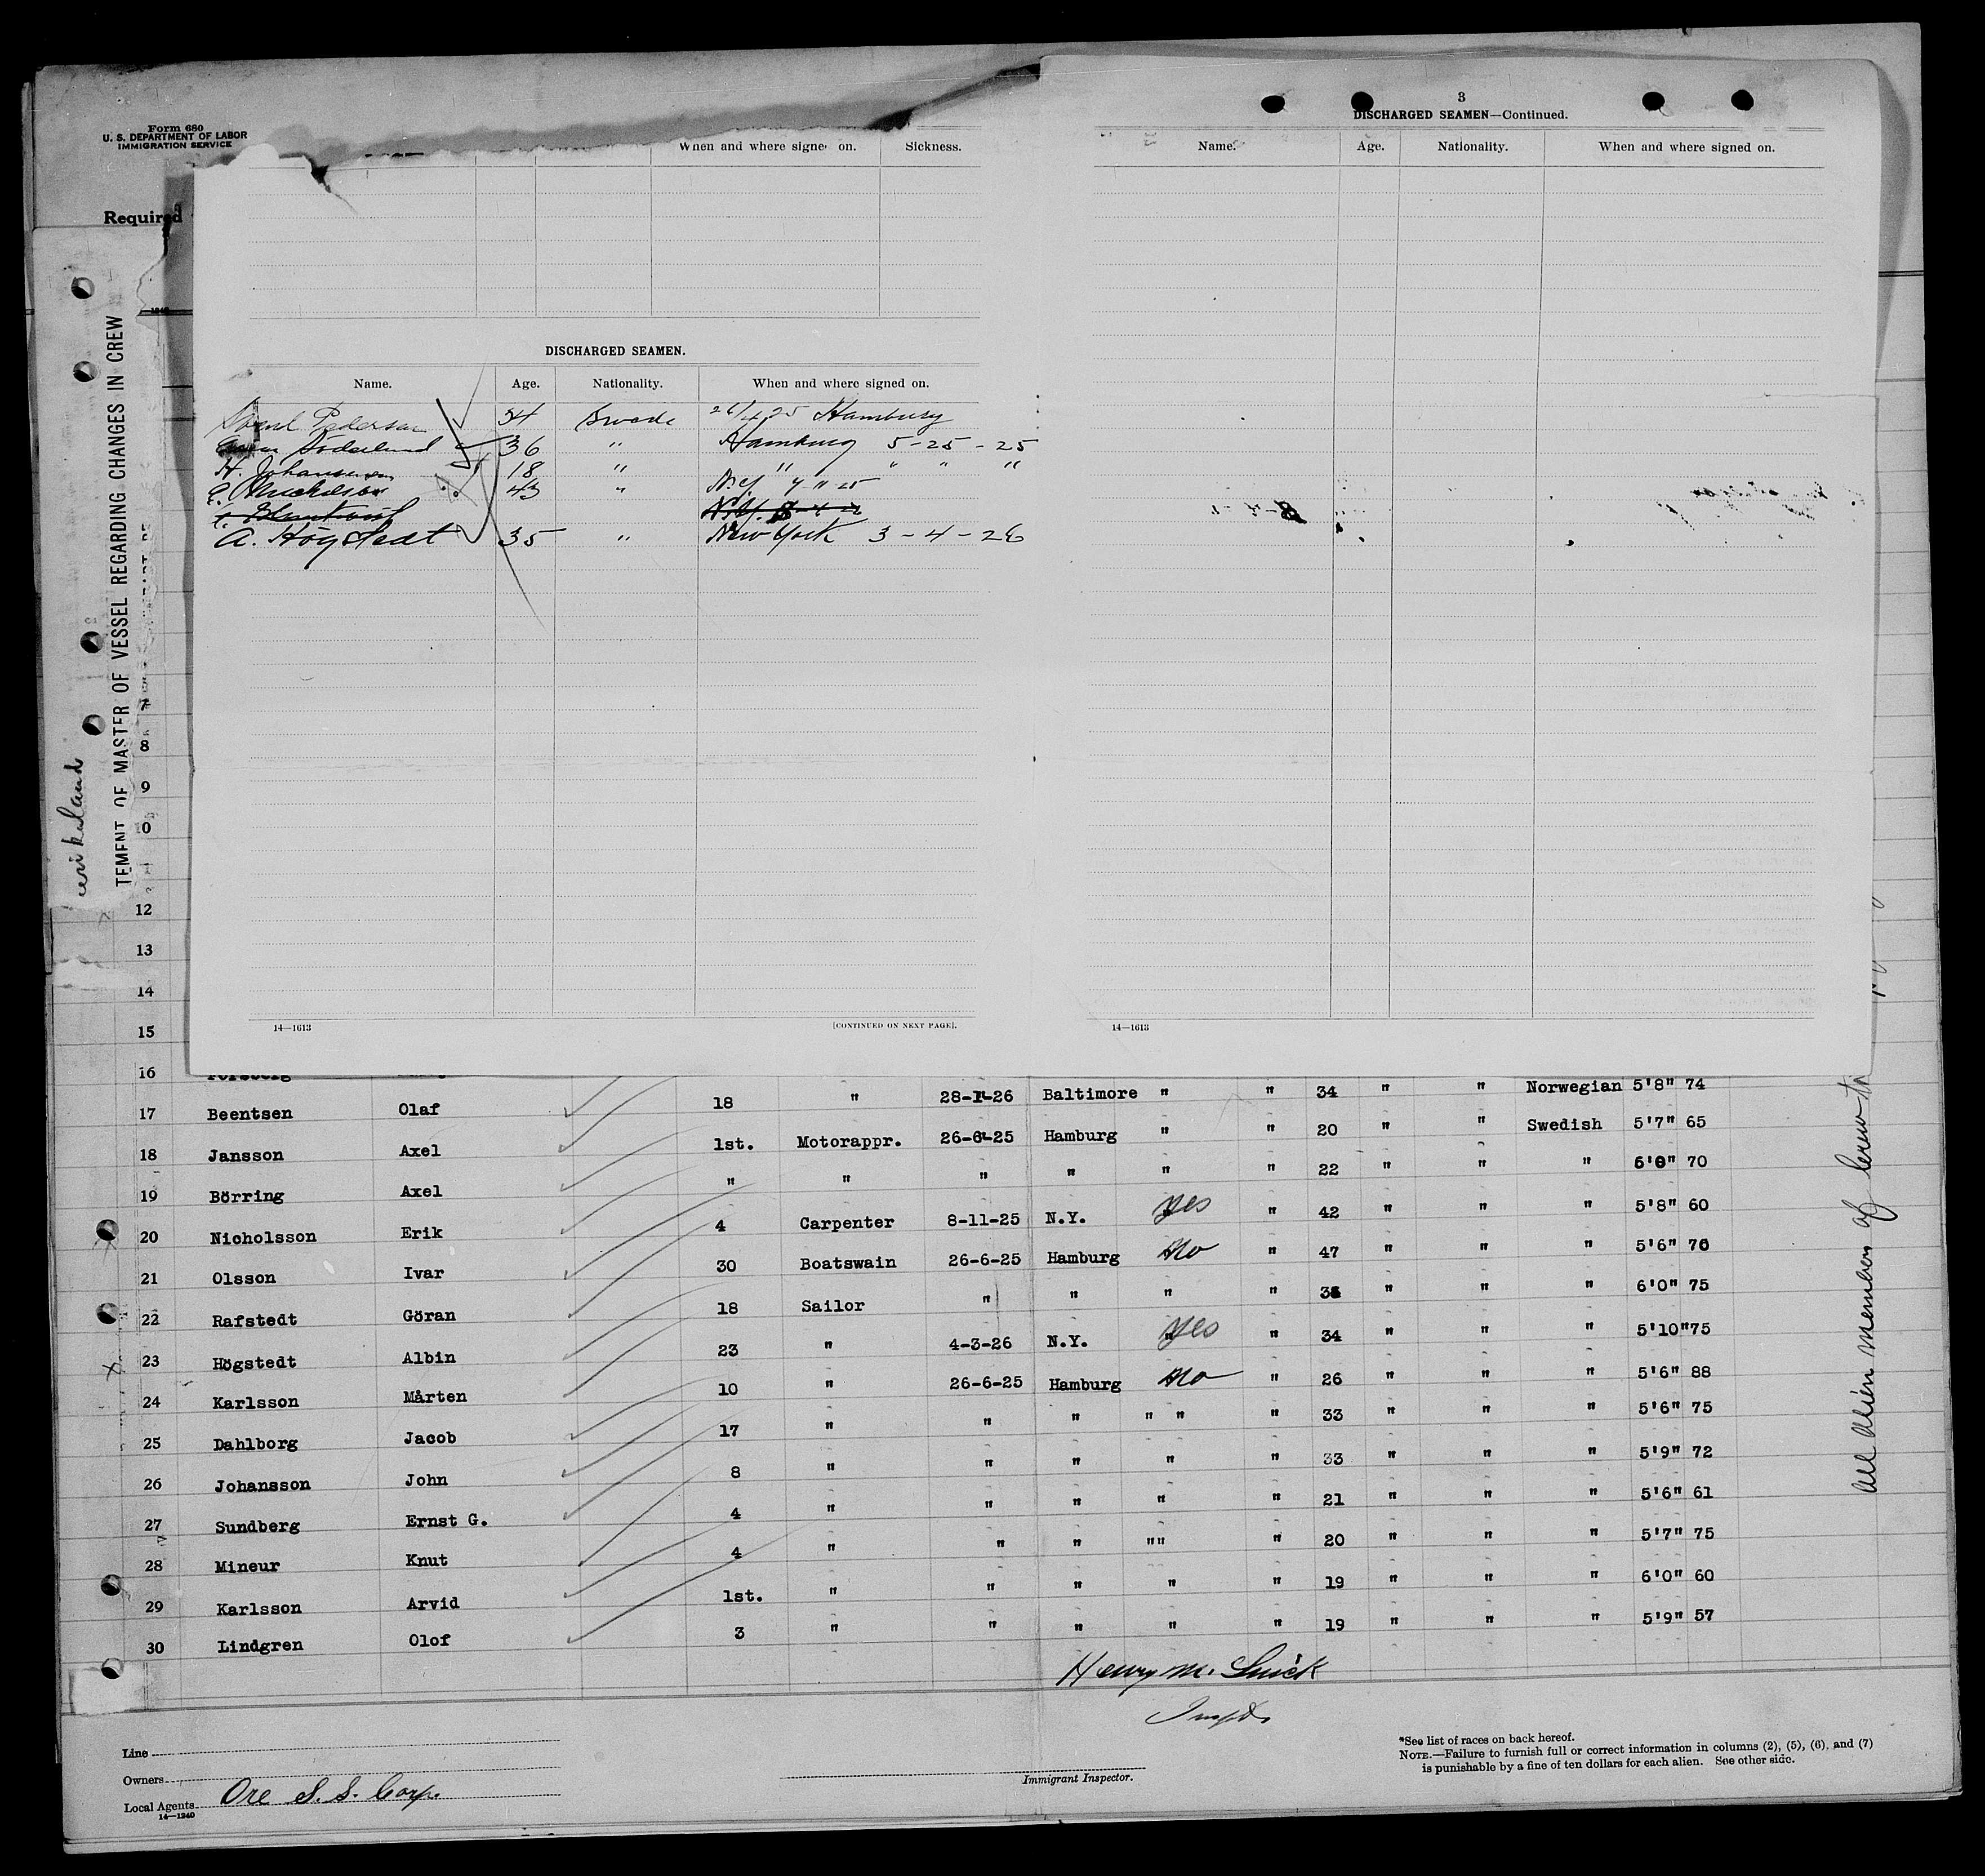 Form 680
U. S. DEPARTMENT OF LABOR
IMMIGRATION SERVICE
Required
TEMENT OF MASTER OF VESSEL REGARDING CHANGES IN CREW
When and where signe on. Sickness.
DISCHARGED SEAMEN.
Name. Age. Nationality. When and where signed on.
Pederson 54 Swede 26/4 25 Hamburg
Söderlund 36 " Hamburg 5-25-25
H. Johansson 18 " " " " "
E. Nicholson 43 " N.Y.
A. Hogstedt 35 " New York 3-4-26
14—1613 [CONTINUED ON NEXT PAGE].
3
DISCHARGED SEAMEN—Continued.
Name. Age. Nationality. When and where signed on.
14—1613
7
8
9
10
12
13
14
15
16 Forsberg
17 Beentsen Olaf 18 " 28-1-26 Baltimore " " 34 " " Norwegian 5'8" 74
18 Jansson Axel 1st. Motorappr. 26-6-25 Hamburg " " 20 " " Swedish 5'7" 65
19 Börring Axel " " " " " " 22 " " " 6'0" 70
20 Nicholsson Erik 4 Carpenter 8-11-25 N.Y. Yes " 42 " " " 5'8" 60
21 Olsson Ivar 30 Boatswain 26-6-25 Hamburg No " 47 " " " 5'6" 76
22 Rafstedt Göran 18 Sailor " " " " " " " 6'0" 75
23 Högstedt Albin 23 " 4-3-26 N.Y. Yes " 34 " " " 5'10" 75
24 Karlsson Mårten 10 " 26-6-25 Hamburg No " 26 " " " 5'6" 88
25 Dahlborg Jacob 17 " " " " " " 33 " " " 5'6" 75
26 Johansson John 8 " " " " " 33 " " " 5'9" 72
27 Sundberg Ernst G. 4 " " " " " 21 " " " 5'6" 61
28 Mineur Knut 4 " " " "" " 20 " " " 5'7" 75
29 Karlsson Arvid 1st. " " " " " 19 " " " 6'0" 60
30 Lindgren Olof 3 " " " " " 19 " " " 5'9" 57
All Alien members of Crew to
Henry M.
Line
Owners
Local Agents Ore S.S. Corp.
14—1240
Immigrant Inspector.
*See list of races on back hereof.
NOTE.—Failure to furnish full or correct information in columns (2), (5), (6), and (7)
is punishable by a fine of ten dollars for each alien. See other side.